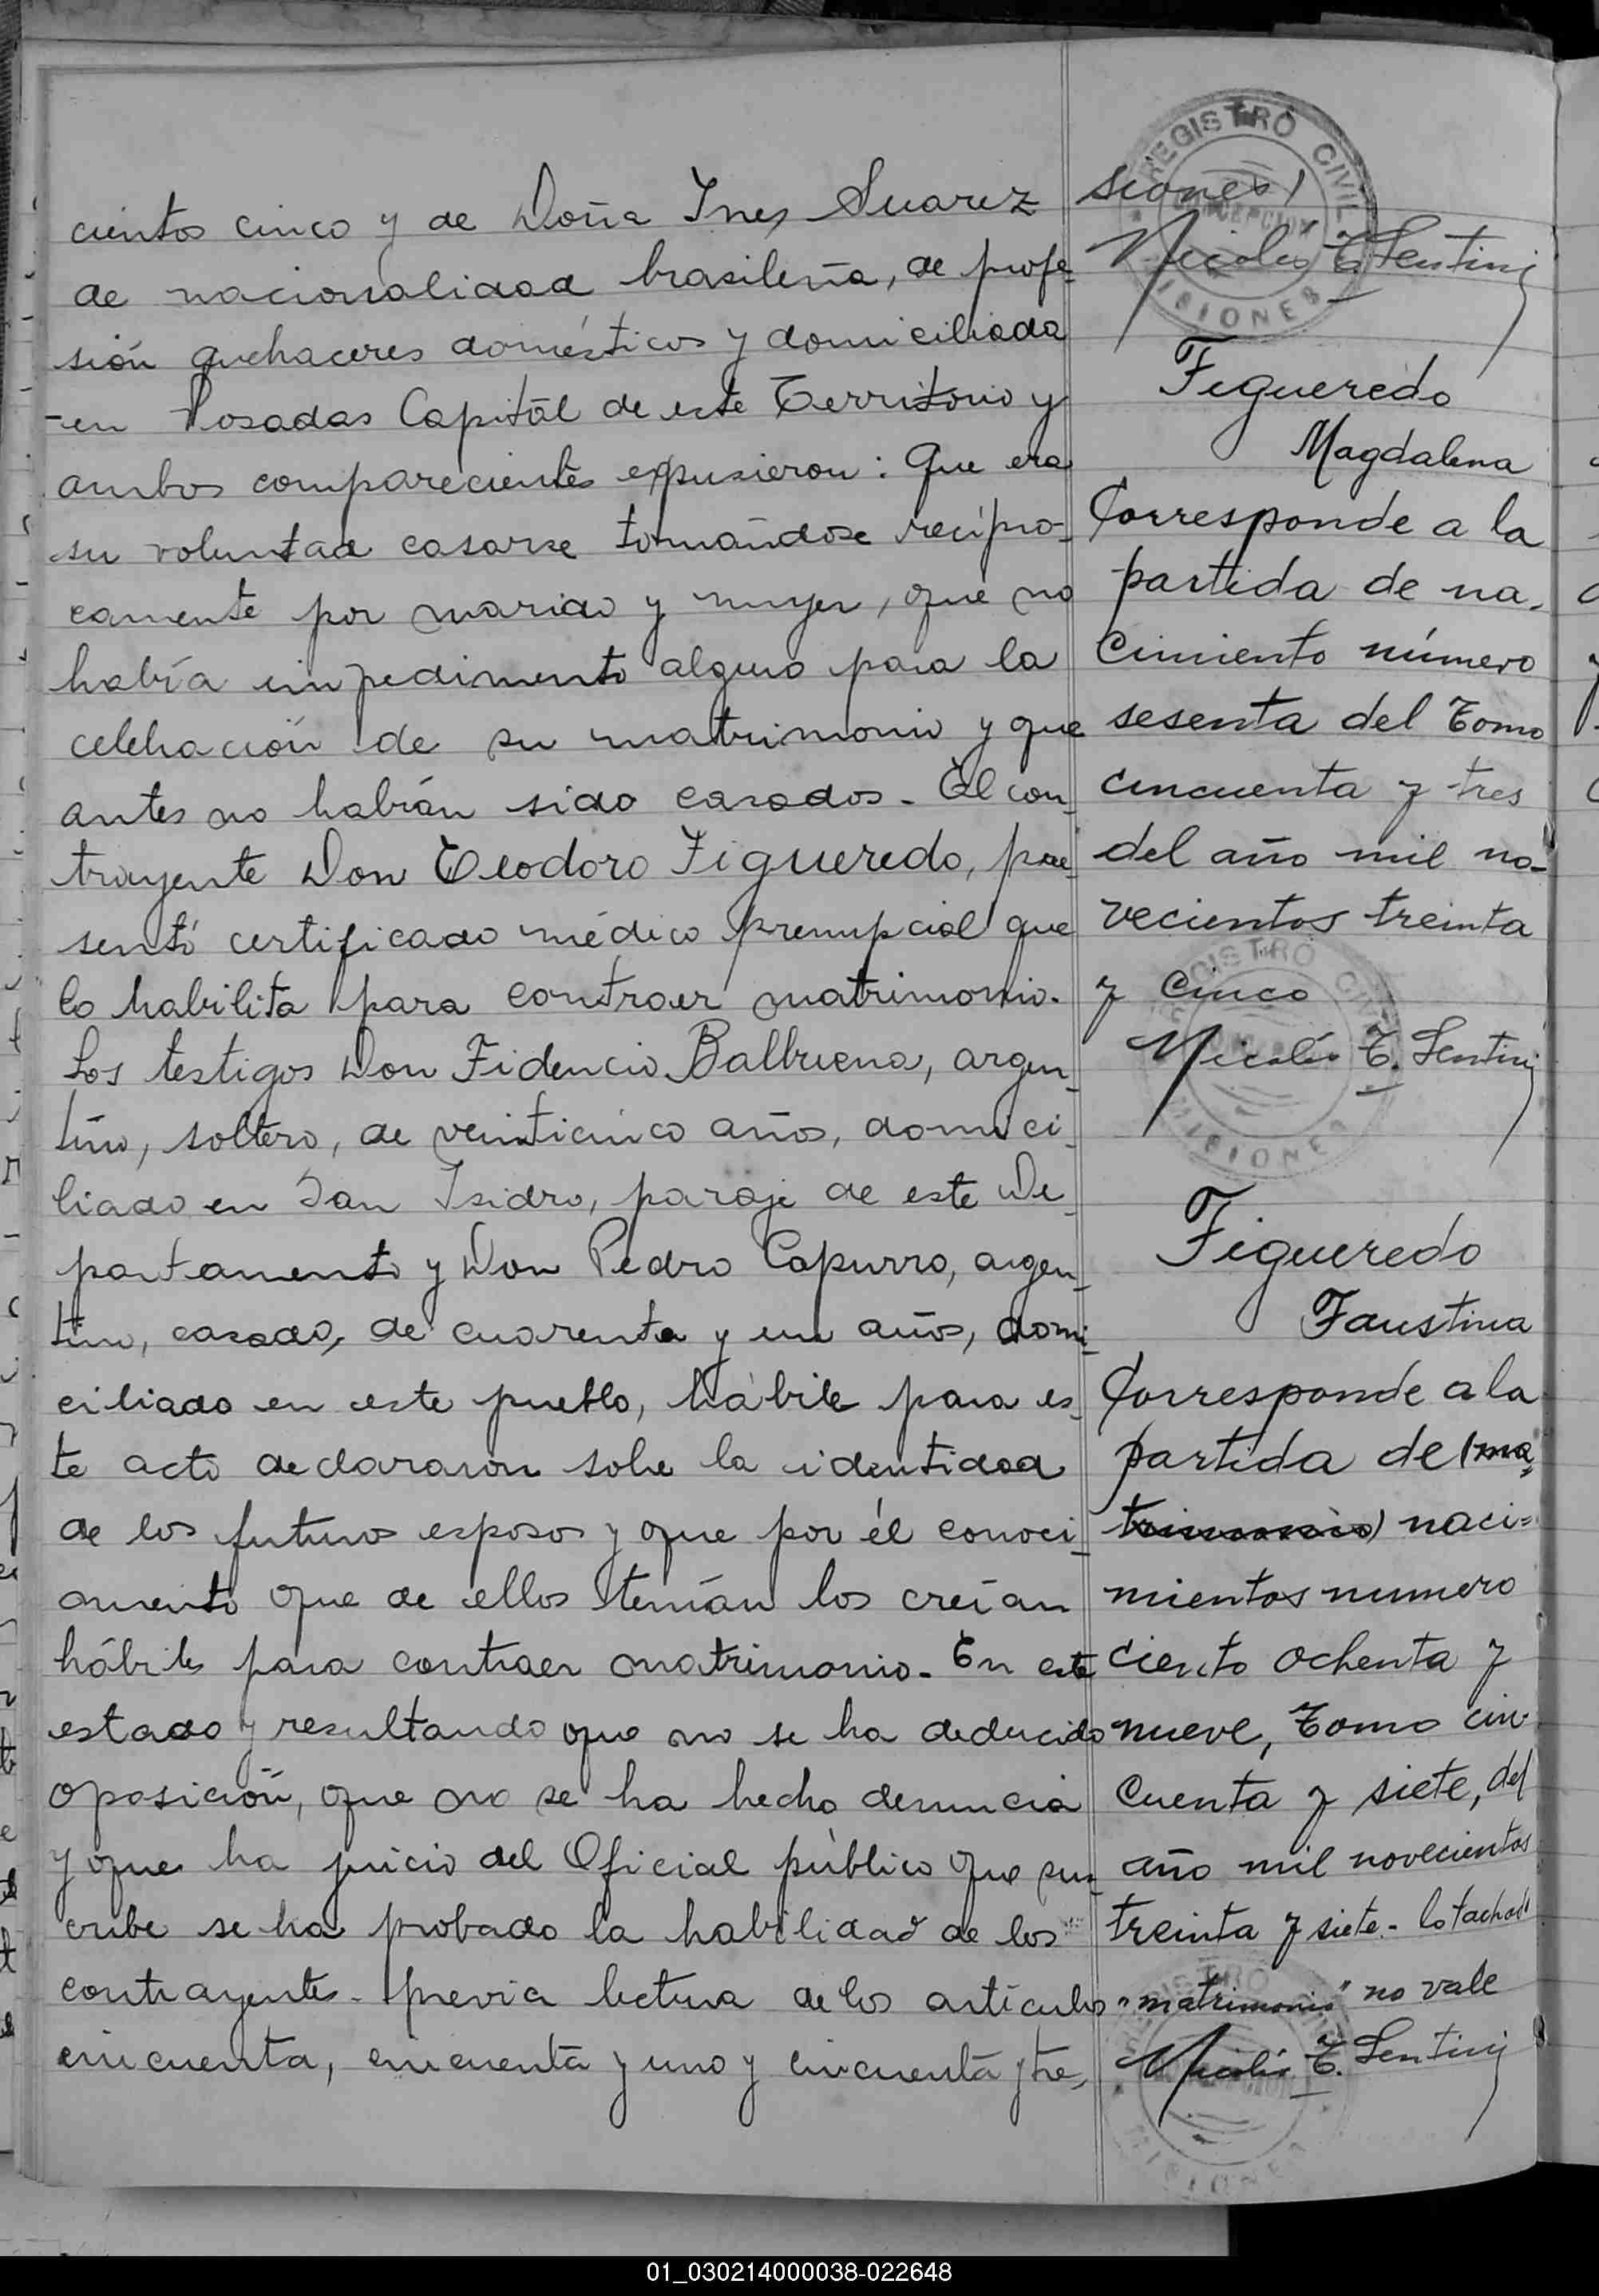 cientos cinco y de Doña Ines Suarez
de nacionalidad brasileña, de profe-
sión quehaceres domésticos y domiciliada
-en Posadas Capital de este Territorio y
ambos comparecientes expusieron: Que era
su voluntad casarse tomándose recípro-
camente por marido y mujer, que no
había impedimento alguno para la
celebración de su matrimonio y que
antes no habían sido casados. El con-
trayente Don Teodoro Figueredo, pre-
sentó certificado médico prenupcial que
lo habilita para contraer matrimonio.
Los testigos Don Fidencio Balbuena, argen-
tino, soltero, de veinticinco años, domici-
liado en San Isidro, paraje de este De-
partamento y Don Pedro Capurro, argen-
tino, casado, de cuarenta y un años, domi-
ciliado en este pueblo, hábile para es-
te acto declararon sobre la identidad
de los futuros esposos y que por él conoci-
miento que de ellos tenían los creían
hábiles para contraer matrimonio. En este
estado y resultando que no se ha deducido
oposición, que no se ha hecho denuncia
y que ha juicio del Oficial público que sus-
cribe se ha probado la habilidad de los
contrayentes. previa lectura de los artículos
cincuenta, cincuenta y uno y cincuenta y tres,
siones)
REGISTRO CIVIL
CONCEPCION
MISIONES
Nicolás T. Sentini
Figueredo
Magdalena
Corresponde a la
partida de na-
cimiento número
sesenta del Tomo
cincuenta y tres
del año mil no-
vecientos treinta
y cinco
REGISTRO CIVIL
MISIONES
Nicolás T. Sentini
Figueredo
Faustina
Corresponde a la
partida de (ma-
trimonio) naci-
mientos numero
ciento ochenta y
nueve, Tomo cin-
cuenta y siete, del
año mil novecientos
treinta y siete. lo tachado
"matrimonio" no vale
REGISTRO
CONCEPCION
MISIONES
Nicolás T. Sentini
01_030214000038-022648